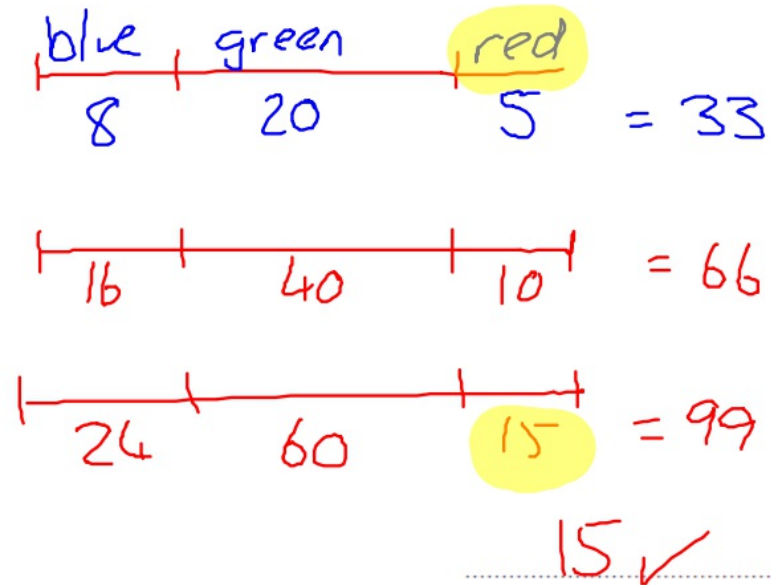 blue green red
8 20 5 = 33
16 40 10 = 66
24 60 15 = 99
15 ✓